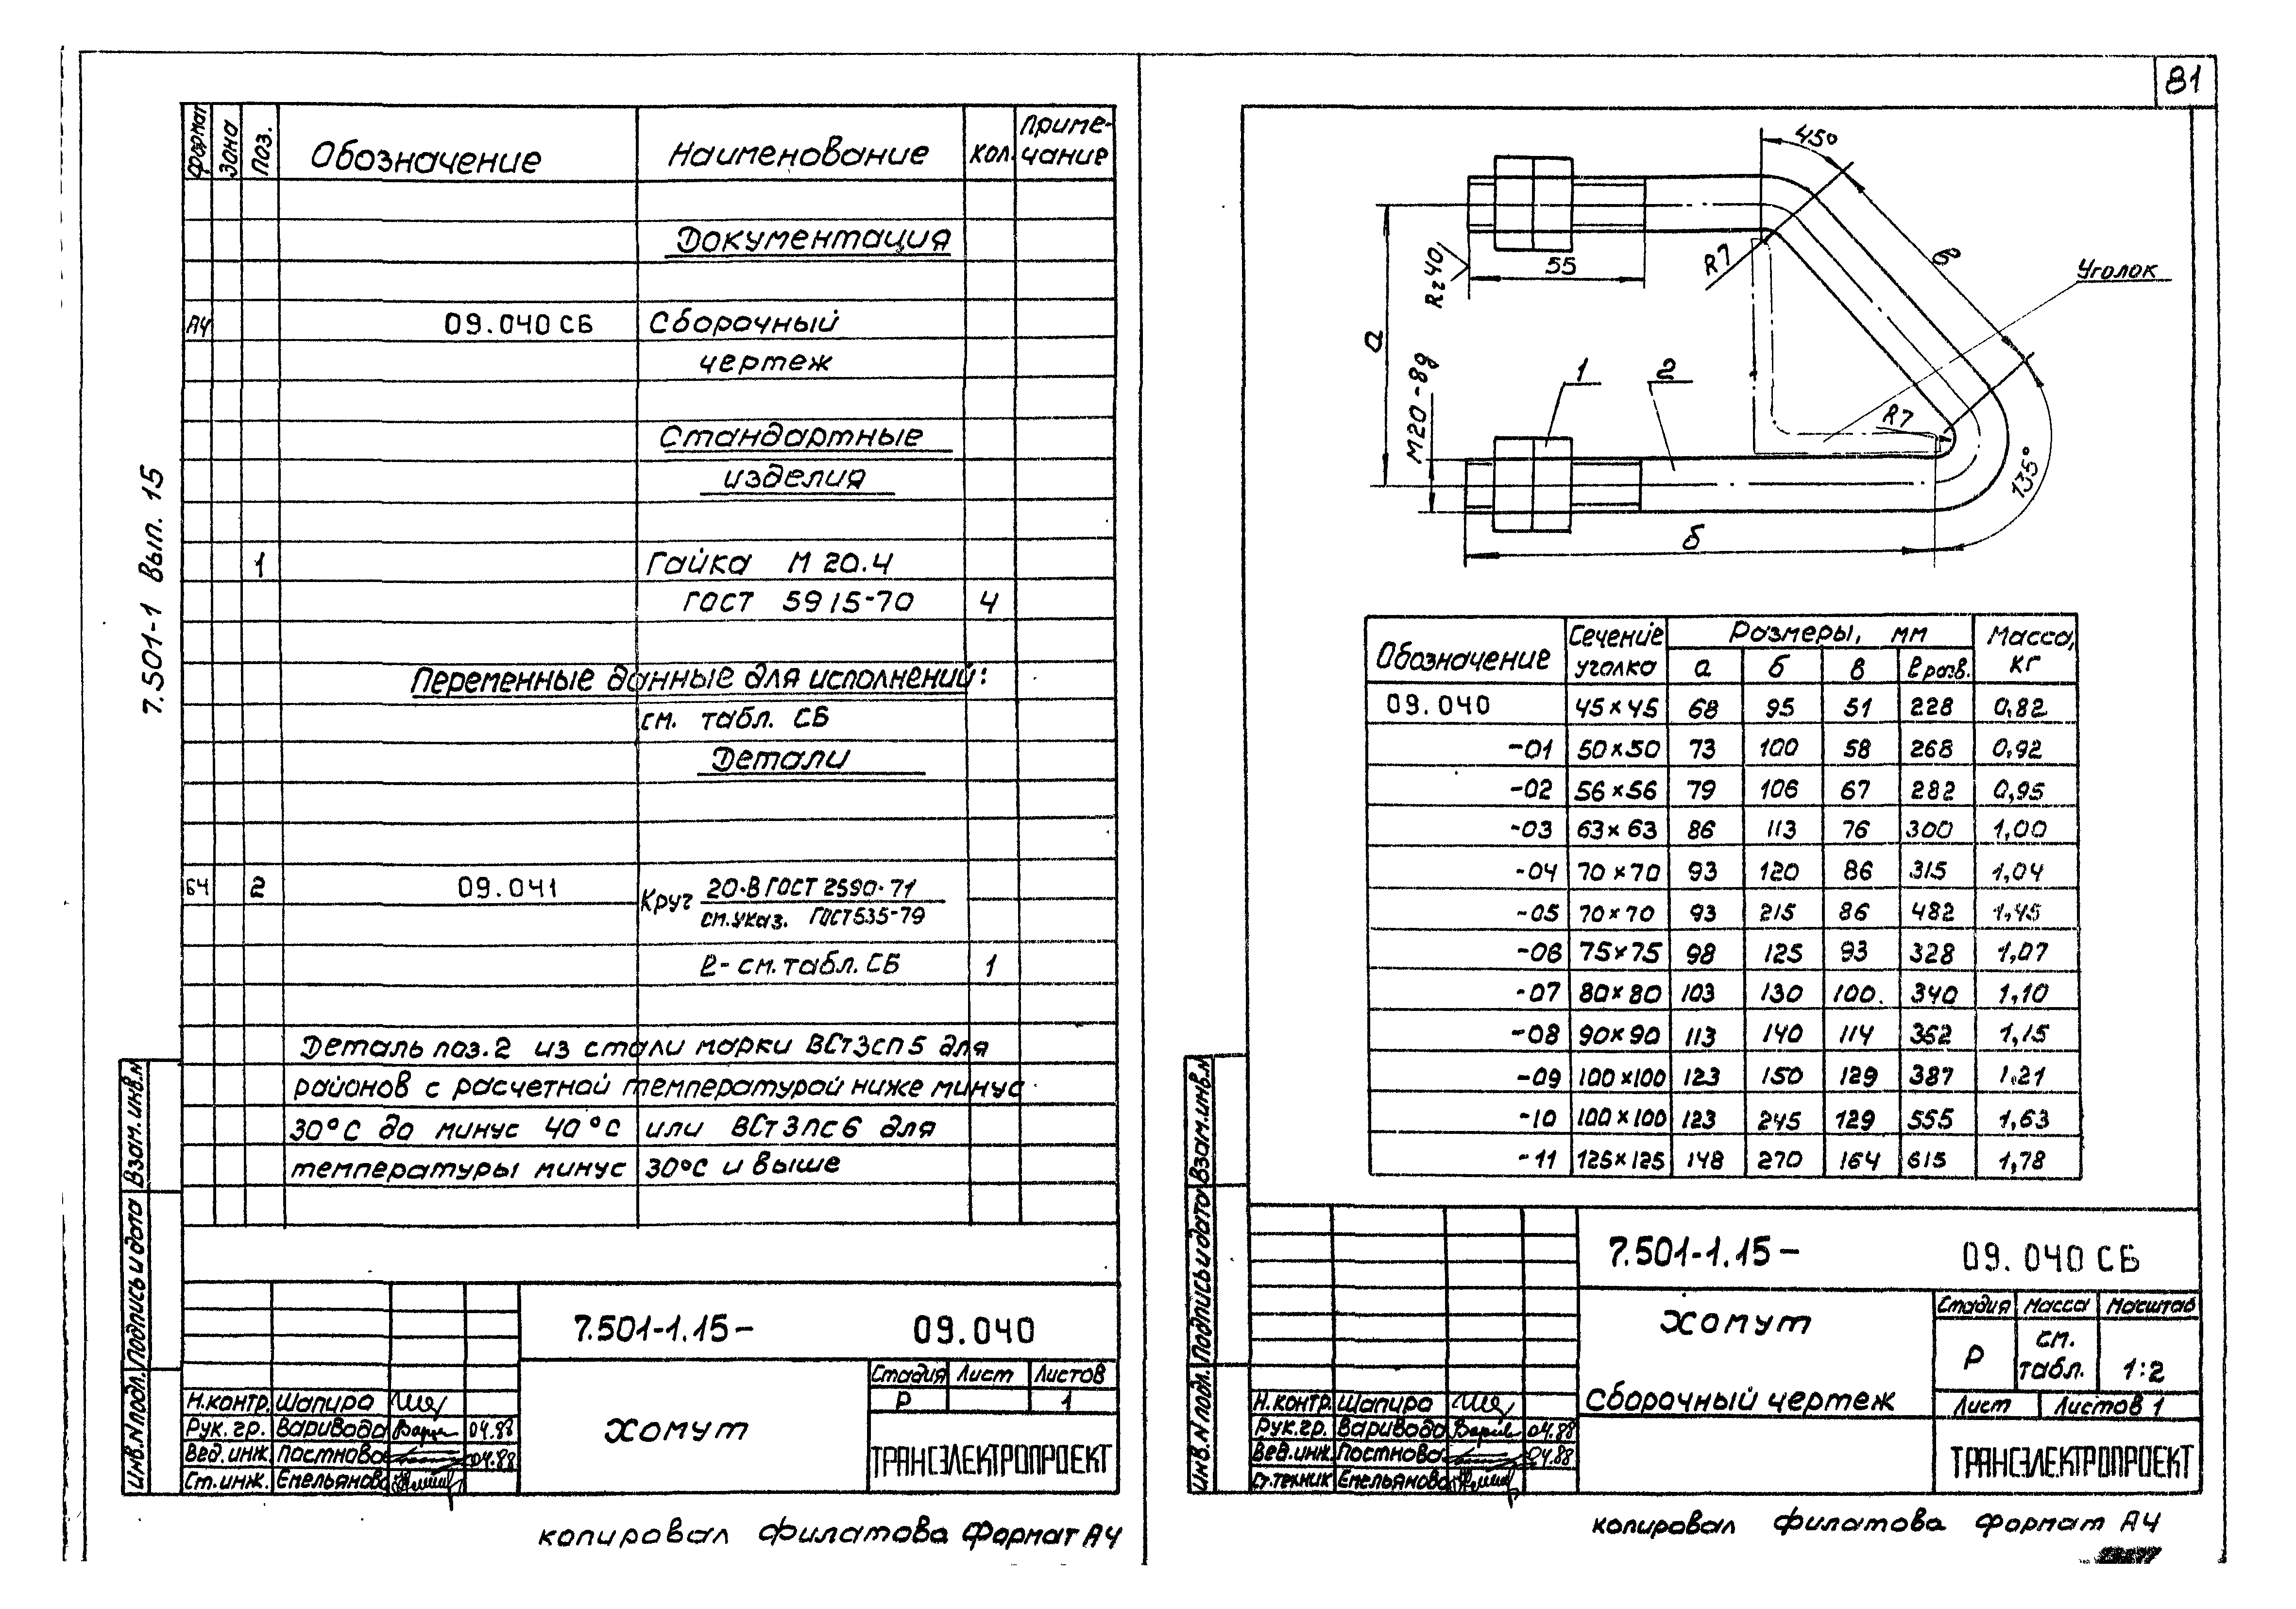 81
7.501-1 Вып. 15
Формат Зона Поз. Обозначение Наименование Кол. Приме-
чание
Документация
А4 09.040 СБ Сборочный
чертеж
Стандартные
изделия
1 Гайка М 20.4
ГОСТ 5915-70 4
Переменные данные для исполнений:
см. табл. СБ
Детали
БЧ 2 09.041 Круг 20-В ГОСТ 2590-71
см.указ. ГОСТ 535-79
ℓ- см. табл. СБ 1
Деталь поз.2 из стали марки ВСт3сп5 для
районов с расчетной температурой ниже минус
30°С до минус 40°С или ВСт3пс6 для
температуры минус 30°С и выше
Инв.№ подл. Подпись и дата Взам.инв.№
7.501-1.15- 09.040
Хомут
Стадия Лист Листов
Р 1
ТРАНСЭЛЕКТРОПРОЕКТ
Н.контр. Шапира
Рук. гр. Варивода 04.88
Вед.инж. Постнова 04.88
Ст.инж. Емельянова
копировал Филатова Формат А4
45°
R7
в
Уголок
55
Rz40
а
М20-8g
1
2
R7
135°
б
Обозначение Сечение уголка Размеры, мм Масса, кг
а б в ℓ разв.
09.040 45×45 68 95 51 228 0,82
-01 50×50 73 100 58 268 0,92
-02 56×56 79 106 67 282 0,95
-03 63×63 86 113 76 300 1,00
-04 70×70 93 120 86 315 1,04
-05 70×70 93 215 86 482 1,45
-06 75×75 98 125 93 328 1,07
-07 80×80 103 130 100. 340 1,10
-08 90×90 113 140 114 362 1,15
-09 100×100 123 150 129 387 1.21
-10 100×100 123 245 129 555 1,63
-11 125×125 148 270 164 615 1,78
Инв.№ подл. Подпись и дата Взам.инв.№
7.501-1.15- 09.040 СБ
Хомут
Сборочный чертеж
Стадия Масса Масштаб
Р см. табл. 1:2
Лист Листов 1
ТРАНСЭЛЕКТРОПРОЕКТ
Н.контр. Шапира
Рук.гр. Варивода 04.88
Вед.инж. Постнова 04.88
Ст.техник Емельянова
копировал Филатова Формат А4